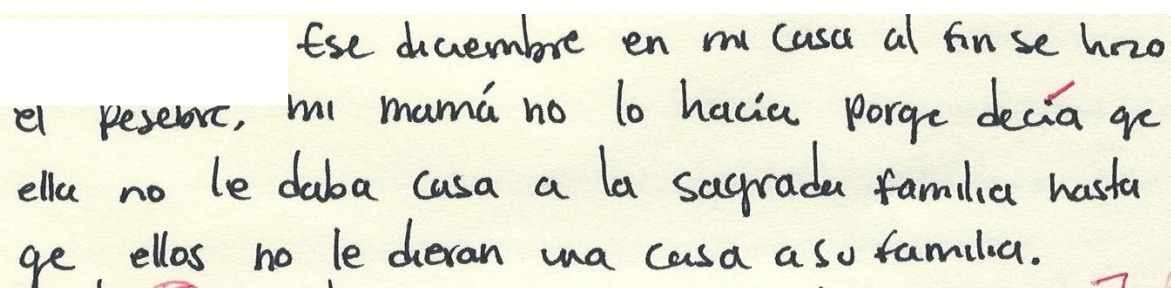 Ese diciembre en mi casa al fin se hizo
el pesebre, mi mamá no lo hacía porqe decía qe
ella no le daba casa a la sagrada familia hasta
qe ellos no le dieran una casa a su familia.